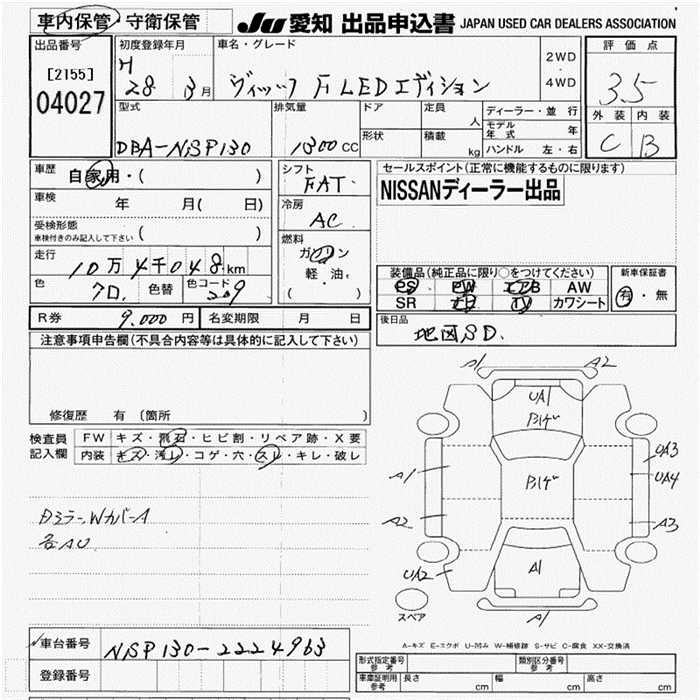 車内保管・守衛保管
JU 愛知 出品申込書 JAPAN USED CAR DEALERS ASSOCIATION
出品番号
[2155]
04027
初度登録年月
H
28 3月
車名・グレード
ヴィッツ F LEDエディション
2WD
4WD
評価点
3.5
外装 内装
C B
型式
DBA-NSP130
排気量
1300CC
ドア
形状
定員
人
積載
kg
ディーラー・並行
モデル年式 年
ハンドル 左・右
車歴 自家用・( )
車検 年 月( 日)
受検形態
車検付きのみ記入して下さい ( )
走行
10万4千048km
色 クロ. 色替 色コード 209
シフト
FAT
冷房
AC
燃料
ガソリン
軽・油・
( )
セールスポイント(正常に機能するものに限ります)
NISSANディーラー出品
装備品(純正品に限り○をつけてください)
PS PW エアB AW
SR ナビ TV カワシート
新車保証書
有・無
R券 9,000円 名変期限 月 日
後日品
地図SD.
注意事項申告欄(不具合内容等は具体的に記入して下さい)
修復歴 有(箇所 )
検査員記入欄
FW キズ・飛石・ヒビ割・リペア跡・X要
内装 キズ・汚レ・コゲ・穴・スレ・キレ・破レ
ミラーWカバーA
各AU
A1 A2
UA1
A1
A2
UA3
UA4
A3
UA2
A1
A1
スペア
A-キズ E-エクボ U-凹み W-補修跡 S-サビ C-腐食 XX-交換済
車台番号 NSP130-2224963
登録番号
形式指定番号参考 類別区分番号参考
車庫証明用参考 長さ cm 幅 cm 高さ cm